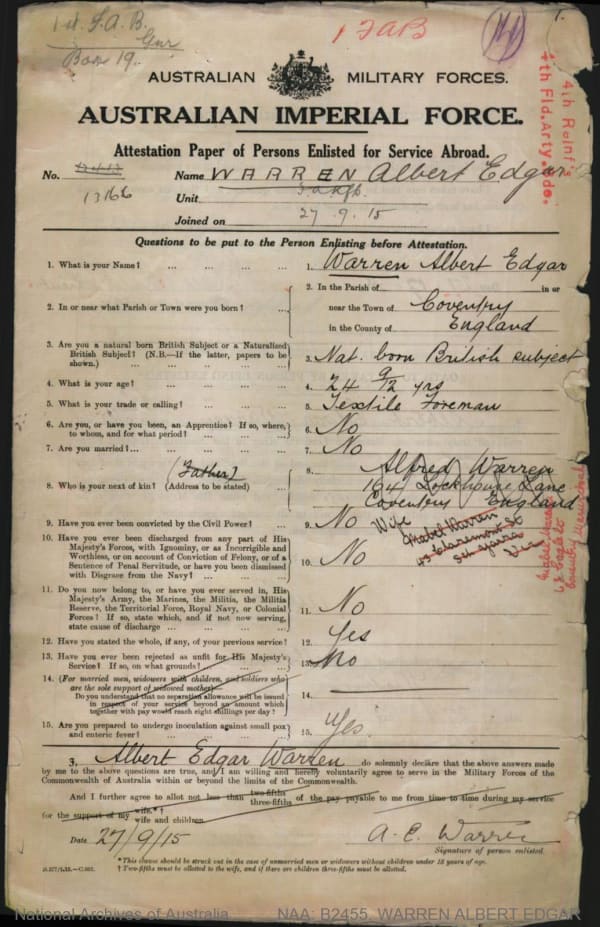 1st F.A.B.
1 FAB
AUSTRALIAN MILITARY FORCES.
AUSTRALIAN IMPERIAL FORCE.
4th Reinf's
4th Fld.Arty.Bde.
Attestation Paper of Persons Enlisted for Service Abroad.
No. 13166 Name WARREN Albert Edgar
Unit
Joined on 27 . 9 . 15
Questions to be put to the Person Enlisting before Attestation.
1. What is your Name? ... ... ... ... 1. Warren Albert Edgar
2. In or near what Parish or Town were you born? ... 2. In the Parish of in or
near the Town of Coventry
in the County of England
3. Are you a natural born British Subject or a Naturalized
British Subject? (N.B.—If the latter, papers to be
shown.) ... ... ... ... 3. Nat. born British subject
4. What is your age? ... ... ... ... 4. 24 9/12 yrs
5. What is your trade or calling? ... ... ... 5. Textile Foreman
6. Are you, or have you been, an Apprentice? If so, where,
to whom, and for what period? ... ... 6. No
7. Are you married?... ... ... ... 7. No
(Father)
8. Who is your next of kin? (Address to be stated) 8. Alfred Warren
164 Lockhouse Lane
Coventry England
Wife
Mabel Warren
43 Claremont St
Sth Yarra
Vic
9. Have you ever been convicted by the Civil Power? ... 9. No
10. Have you ever been discharged from any part of His
Majesty's Forces, with Ignominy, or as Incorrigible and
Worthless, or on account of Conviction of Felony, or of a
Sentence of Penal Servitude, or have you been dismissed
with Disgrace from the Navy? ... ... 10. No
11. Do you now belong to, or have you ever served in, His
Majesty's Army, the Marines, the Militia, the Militia
Reserve, the Territorial Force, Royal Navy, or Colonial
Forces? If so, state which, and if not now serving,
state cause of discharge ... ... ... 11. No
12. Have you stated the whole, if any, of your previous service? 12. Yes
13. Have you ever been rejected as unfit for His Majesty's
Service? If so, on what grounds? ... ... 13. No
14. (For married men, widowers with children, and soldiers who
are the sole support of widowed mother)—
Do you understand that no separation allowance will be issued
in respect of your service beyond an amount which
together with pay would reach eight shillings per day? 14.
15. Are you prepared to undergo inoculation against small pox
and enteric fever? ... ... ... 15. Yes
3, Albert Edgar Warren do solemnly declare that the above answers made
by me to the above questions are true, and I am willing and hereby voluntarily agree to serve in the Military Forces of the
Commonwealth of Australia within or beyond the limits of the Commonwealth.
And I further agree to allot not less than two-fifths three-fifths of the pay payable to me from time to time during my service
for the support of my wife.*† wife and children.
Date 27/9/15 A. E. Warren
Signature of person enlisted.
* This clause should be struck out in the case of unmarried men or widowers without children under 18 years of age.
† Two-fifths must be allotted to the wife, and if there are children three-fifths must be allotted.
National Archives of Australia NAA: B2455, WARREN ALBERT EDGAR